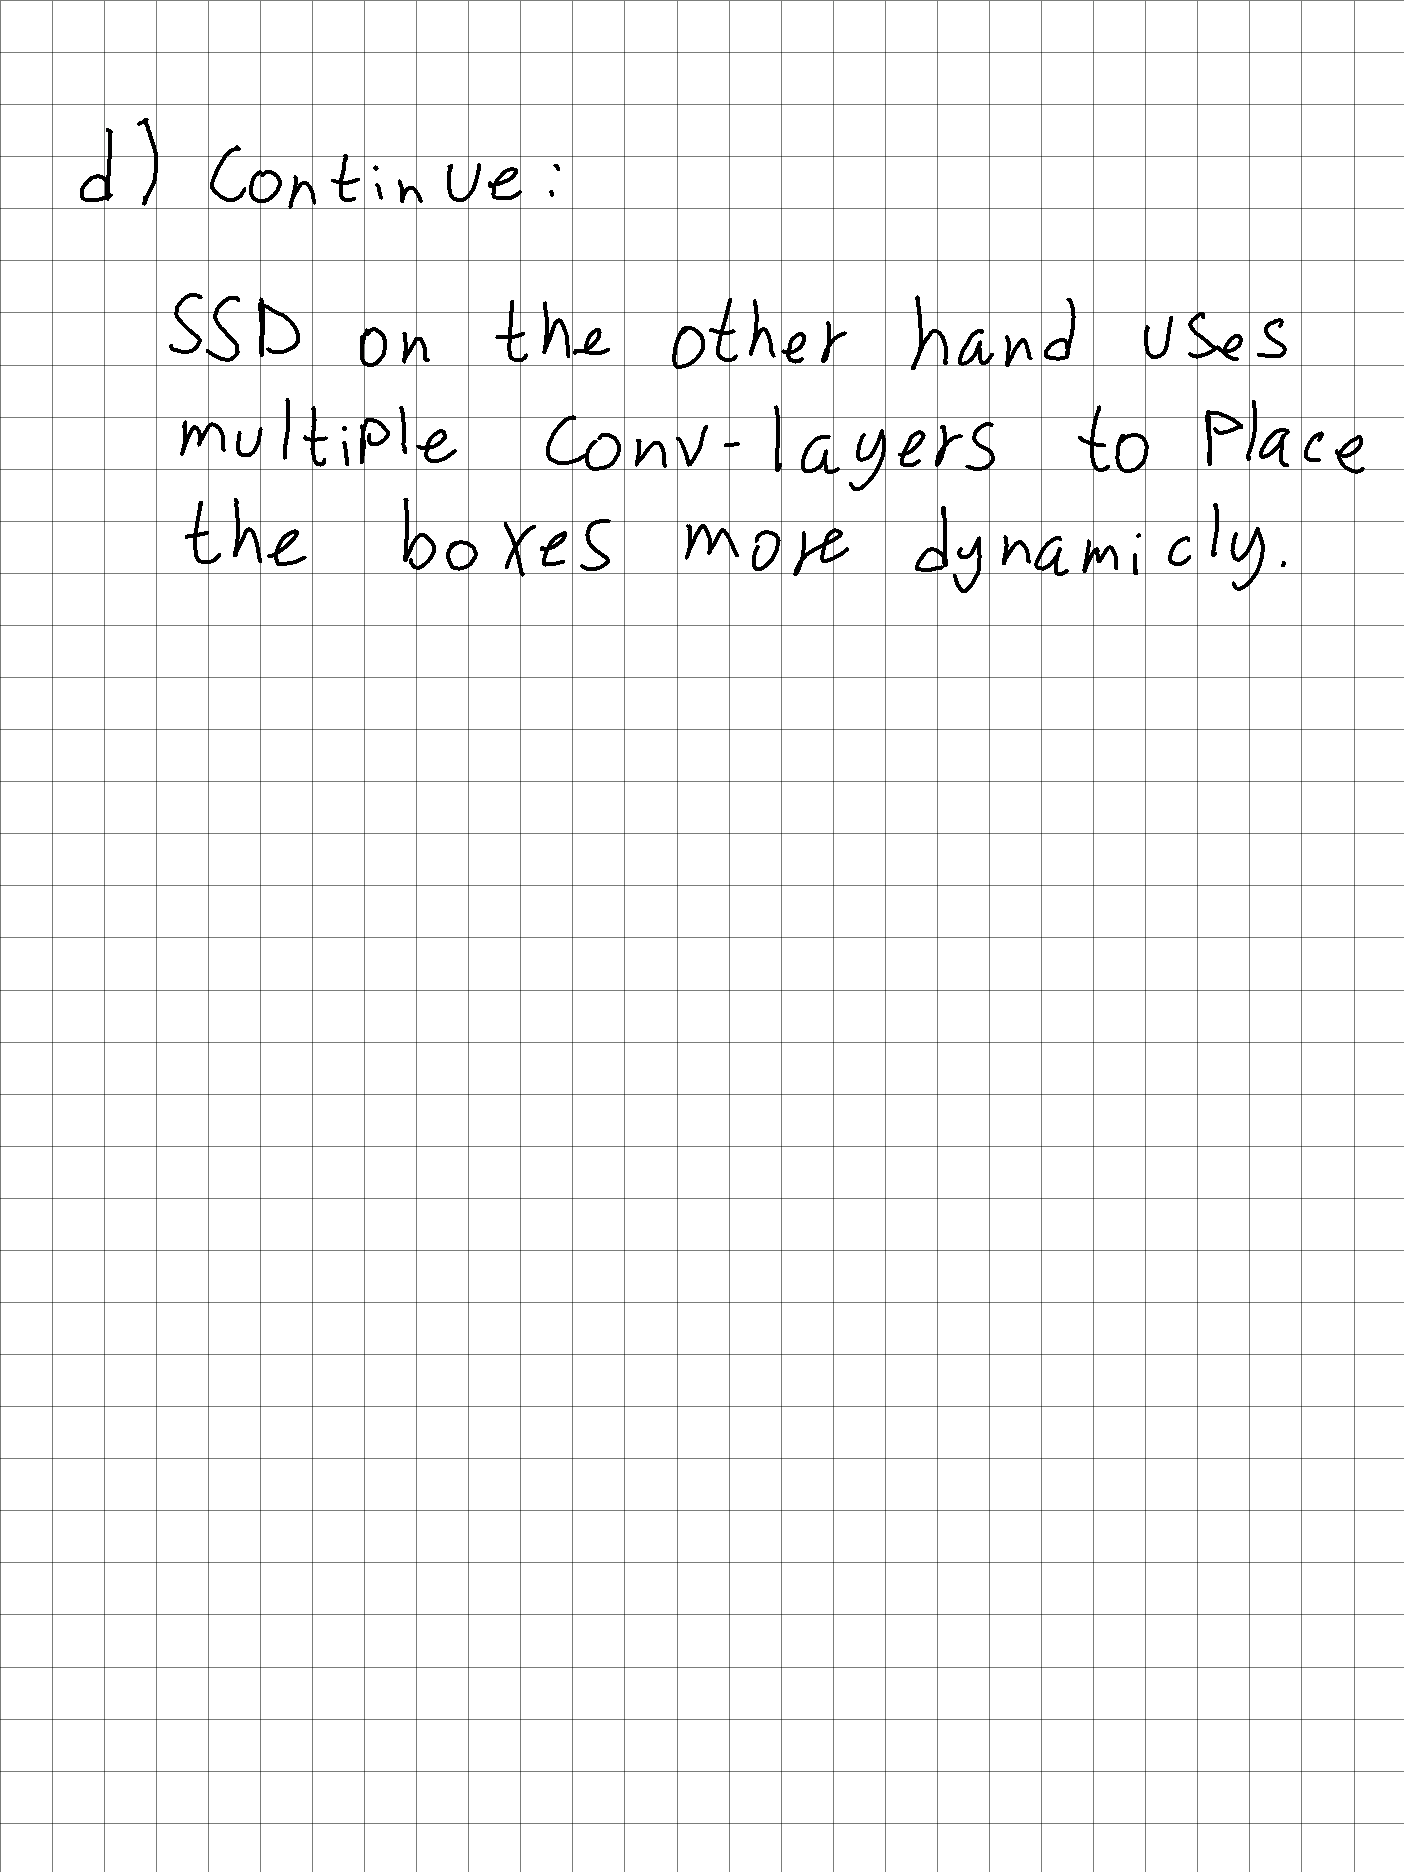 d) Continue:
SSD on the other hand uses
multiple Conv-layers to Place
the boxes more dynamicly.